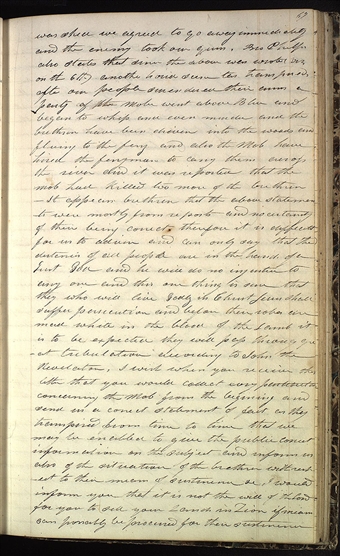 67
was shed we agreed to go away immediately
and the enemy took our guns. Bro Phelps
also states that since the above was wrote viz
on the 6th) another horrid scene has transpired
after our people surrendered their arms a
party of the Mob went above Blue and
began to whip and even murder and the
brethren have been driven into the woods and
fleeing to the ferry and also the Mob have
hired the ferryman to carry them across
the river and it was reported that the
mob had killed two more of the brethren
It appears brethren that the above statemen
ts were mostly from reports and no certainty
of their being correct therefore it is difficult
for us to advise and can only say that the
destinies of all people are in the hands of a
Just God and he will do no injustice to
any one and this one thing is sure that
they who will live Godly in Christ Jesus shall
suffer persecution and before their robes are
made white in the blood of the Lamb it
is to be expected they will pass through gre
at tribulation according to John the
Revelator. I wish when you receive this
letter that you would collect every particular
concerning the Mob from the begining and
send us a correct statement of facts as they
transpired from time to time that we
may be enabled to give the public correct
information on the subject and inform us
also of the situation of the brethren with resp
ect to their means of sustinance &c. I would
inform you that it is not the will of the Lord
for you to sell your Lands in Zion if means
can possably be procured for their sustinance